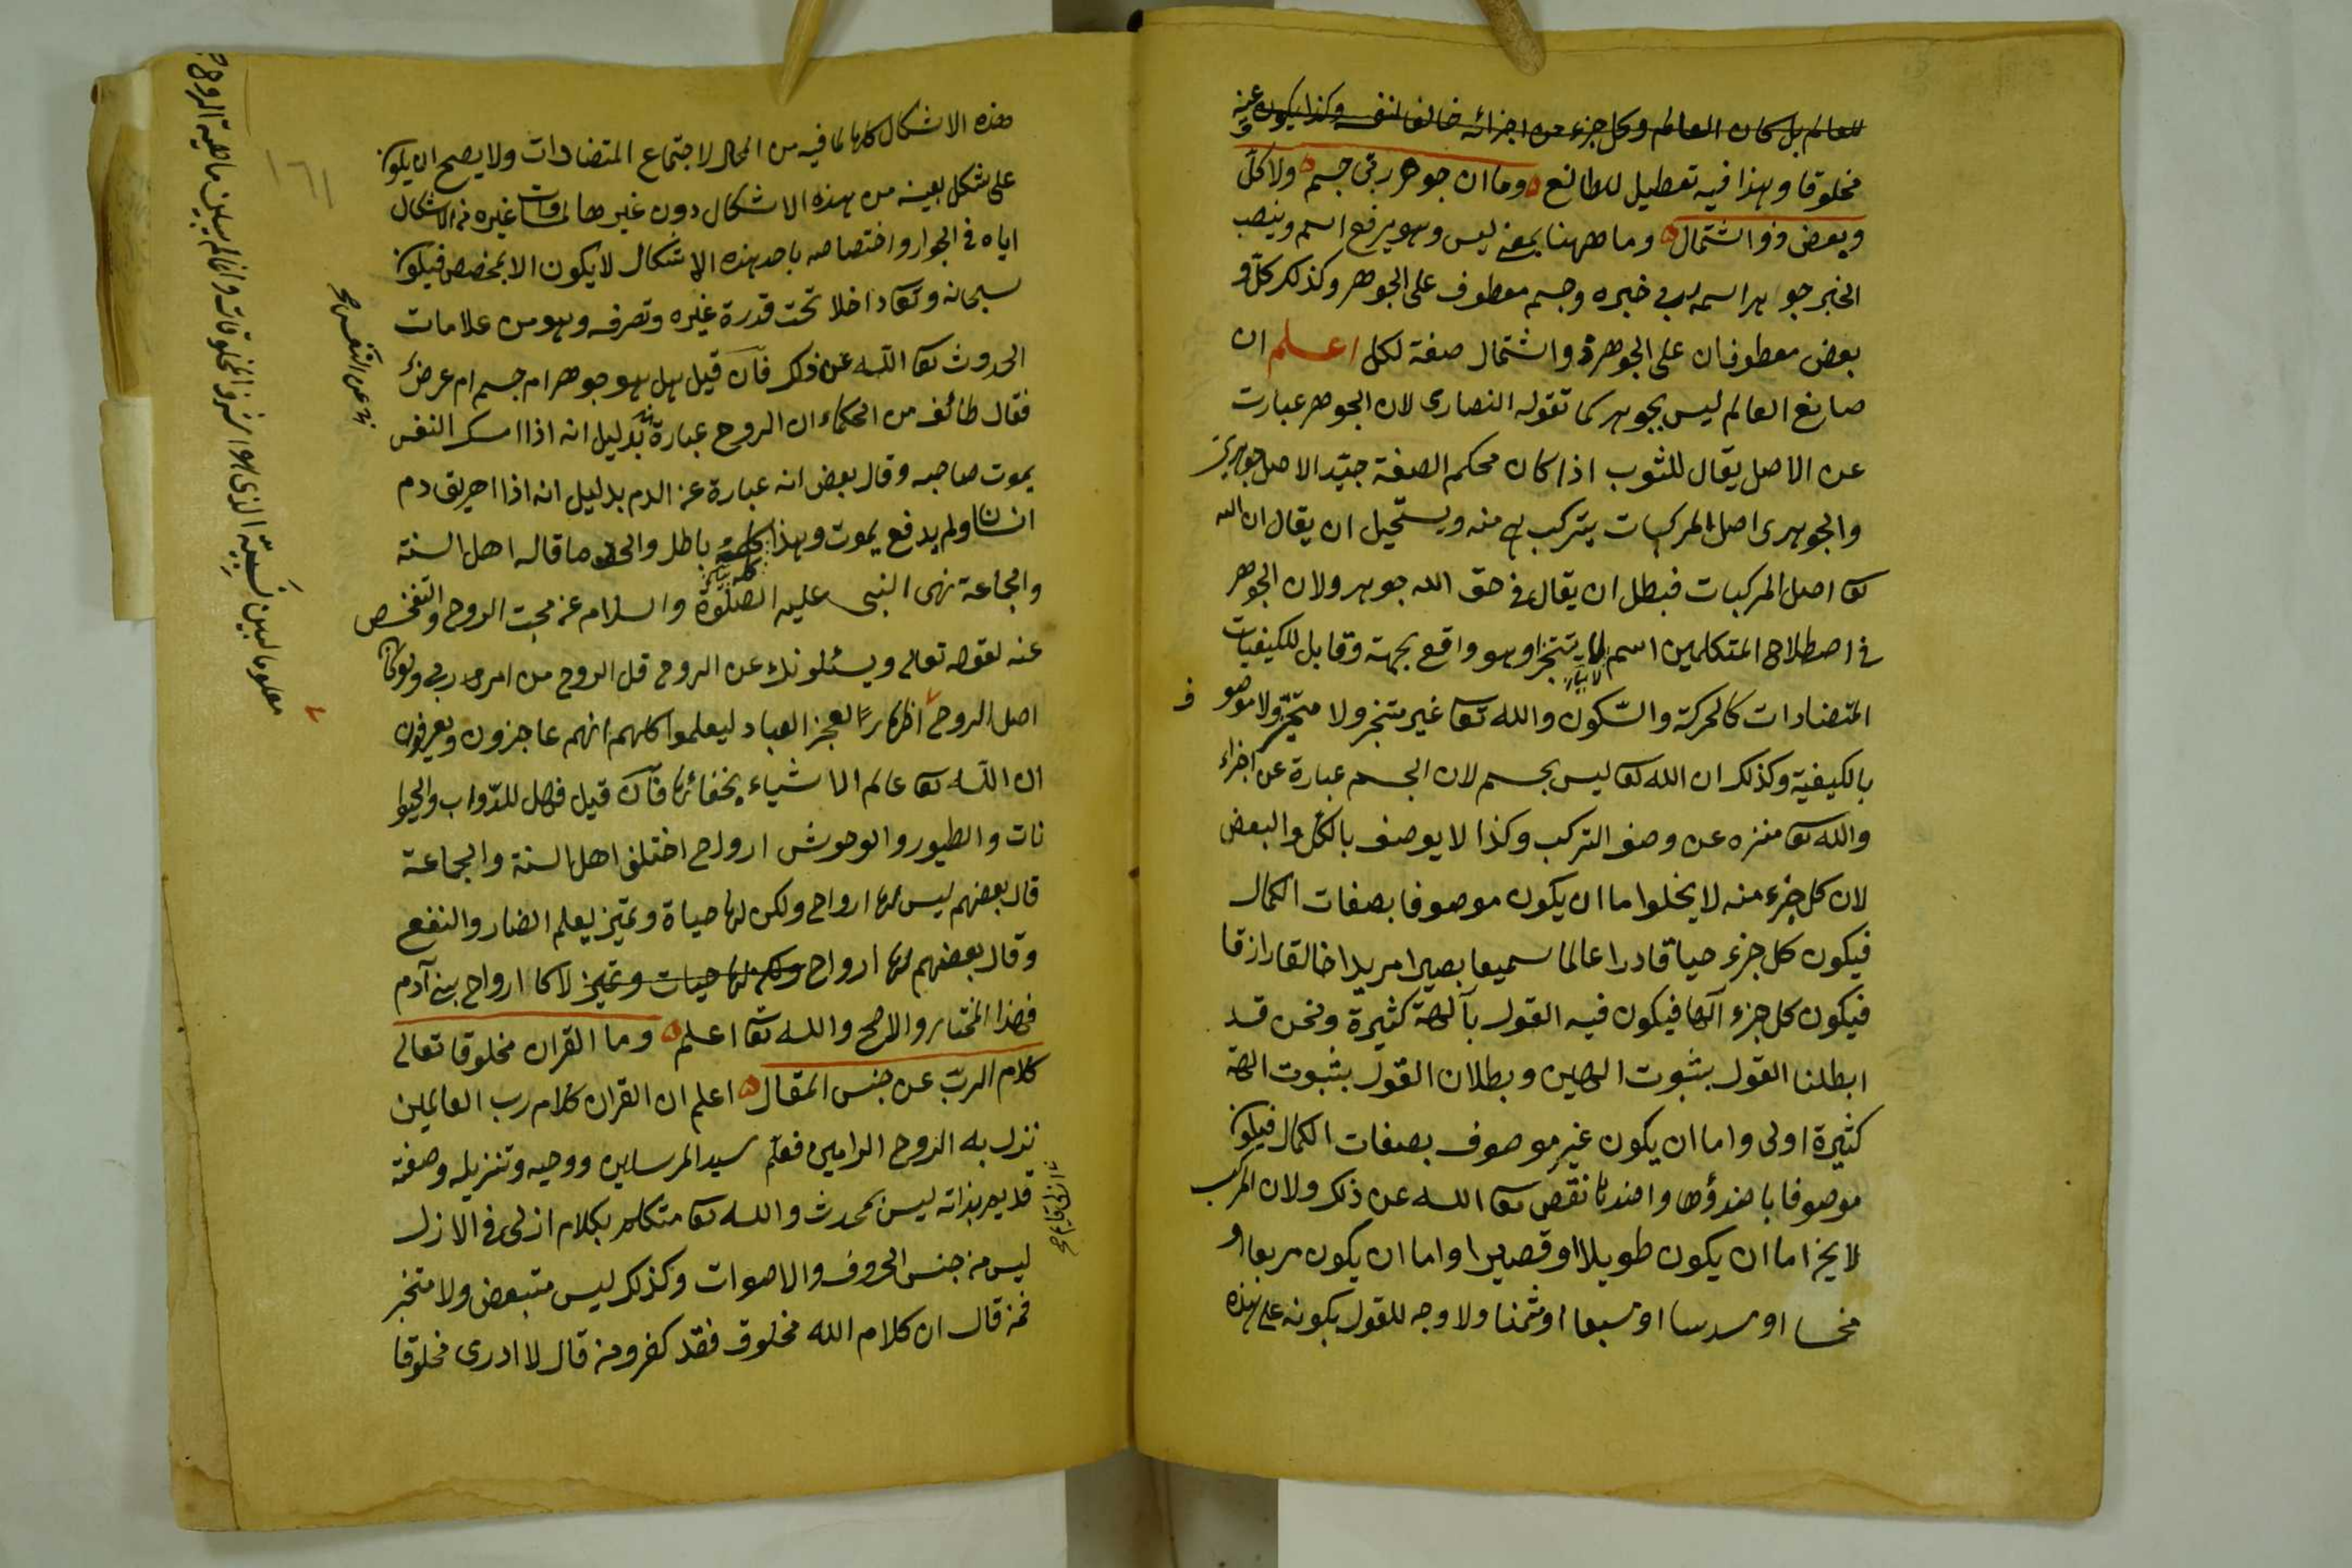 للعالم بل كان العالم وكل جزء من اجزائه خالقا لنفسه وكذا يكون عينه
مخلوقا وهذا فيه تعطيل للصانع وما ان جوهر ربى جسم ولا كل
وبعض ذو اشتمال وما ههنا بمعنى ليس وهو يرفع اسم وينصب
الخبر جواهر اسمه ربى خبره وجسم معطوف على الجوهر وكذلك كل و
بعض معطوفان على الجوهر واشتمال صفة لكل اعلم ان
صانع العالم ليس بجوهر كما تقوله النصارى لان الجوهر عبارت
عن الاصل يقال للثوب اذا كان محكم الصفة جيّد الاصل جوهرى
والجوهرى اصل المركبات يتركب منه ويستحيل ان يقال ان الله
تعا اصل المركبات فبطل ان يقال فى حق الله جوهر ولان الجوهر
فى اصطلاح المتكلمين اسم لا يتنجز وهو واقع بجهة وقابل للكيفيات
المتضادات كالحركة والسّكون والله تعا غير متنجز ولا متحيّز ولا موصو
ف
بالكيفية وكذلك ان الله تعا ليس بجسم لان الجسم عبارة عن اجزاء
والله تعا منزه عن وصف التركب وكذا لا يوصف بالكل والبعض
لان كل جزء منه لا يخلوا ما ان يكون موصوفا بصفات الكمال
فيكون كل جزء حيا قادرا عالما سميعا بصيرا مريدا خالقا رازقا
فيكون كل جزء آلها فيكون فيه القول بآلهة كثيرة ونحن قد
ابطلنا القول بثبوت الهين وبطلان القول بثبوت الهة
كثيرة اولى واما ان يكون غير موصوف بصفات الكمال فيكون
موصوفا باضدؤها واضدها نقص تعا الله عن ذلك ولان المركب
لا يخ اما ان يكون طويلا او قصيرا واما ان يكون مربعا او
مخمسا او مسدسا او مسبعا او مثمنا ولا وجه للقول بكونه على هذه
هذه الاشكال كلها لما فيه من المحال لاجتماع المتضادات ولا يصح ان يكون
على شكل بعينه من هذه الاشكال دون غيرها لمساوات غيره من الاشكال
اياه فى الجوار واختصاصه باحد هذه الاشكال لا يكون الا بمخصص فيكون
سبحانه وتعا داخلا تحت قدرة غيره وتصرفه وهو من علامات
الحدوث تعا الله عن ذلك فان قيل هل هو جوهر ام جسم ام عرض
فقال طائفة من الحكماء ان الروح عبارة بدليل انه اذا امسك النفس
يموت صاحبه وقال بعض انه عبارة عن الدم بدليل انه اذا اهريق دم
انسانا ولم يدفع يموت وهذا كله باطل والحق ما قاله اهل السنة
والجماعة نهى النبى عليه الصلوة والسلام عن مجت الروح والتفخص
عنه لقوله تعالى ويسئلونك عن الروح قل الروح من امر ربى ولو كان
اصل الروح اظهارًا لعجز العباد ليعلموا كلهم انهم عاجزون ويعرفون
ان الله تعا عالم الاشياء بخفائها فان قيل فهل للدّواب والحيوا
نات والطيور والوحوش ارواح اختلف اهل السنة والجماعة
قال بعضهم ليس لها ارواح ولكن لها حياة وتميّز يعلم الضار والنفع
وقال بعضهم لها ارواح ولكن لها حيات وتميّز لا كا ارواح بنى آدم
فهذا المختار والاصح والله تعا اعلم وما القران مخلوقا تعالى
كلام الربّ عن جنس المقال اعلم ان القران كلام رب العالمين
نزل به الروح الامين فعلّم سيد المرسلين ووحيه وتنزيله وصفته
قديم بذاته ليس بمحدث والله تعا متكلم بكلام ازلى فى الازل
ليس من جنس الحروف والاصوات وكذلك ليس متبعض ولا متخبر
فمن قال ان كلام الله مخلوق فقد كفر ومن قال لا ادرى مخلوقا
عن النفس صح
١٦١